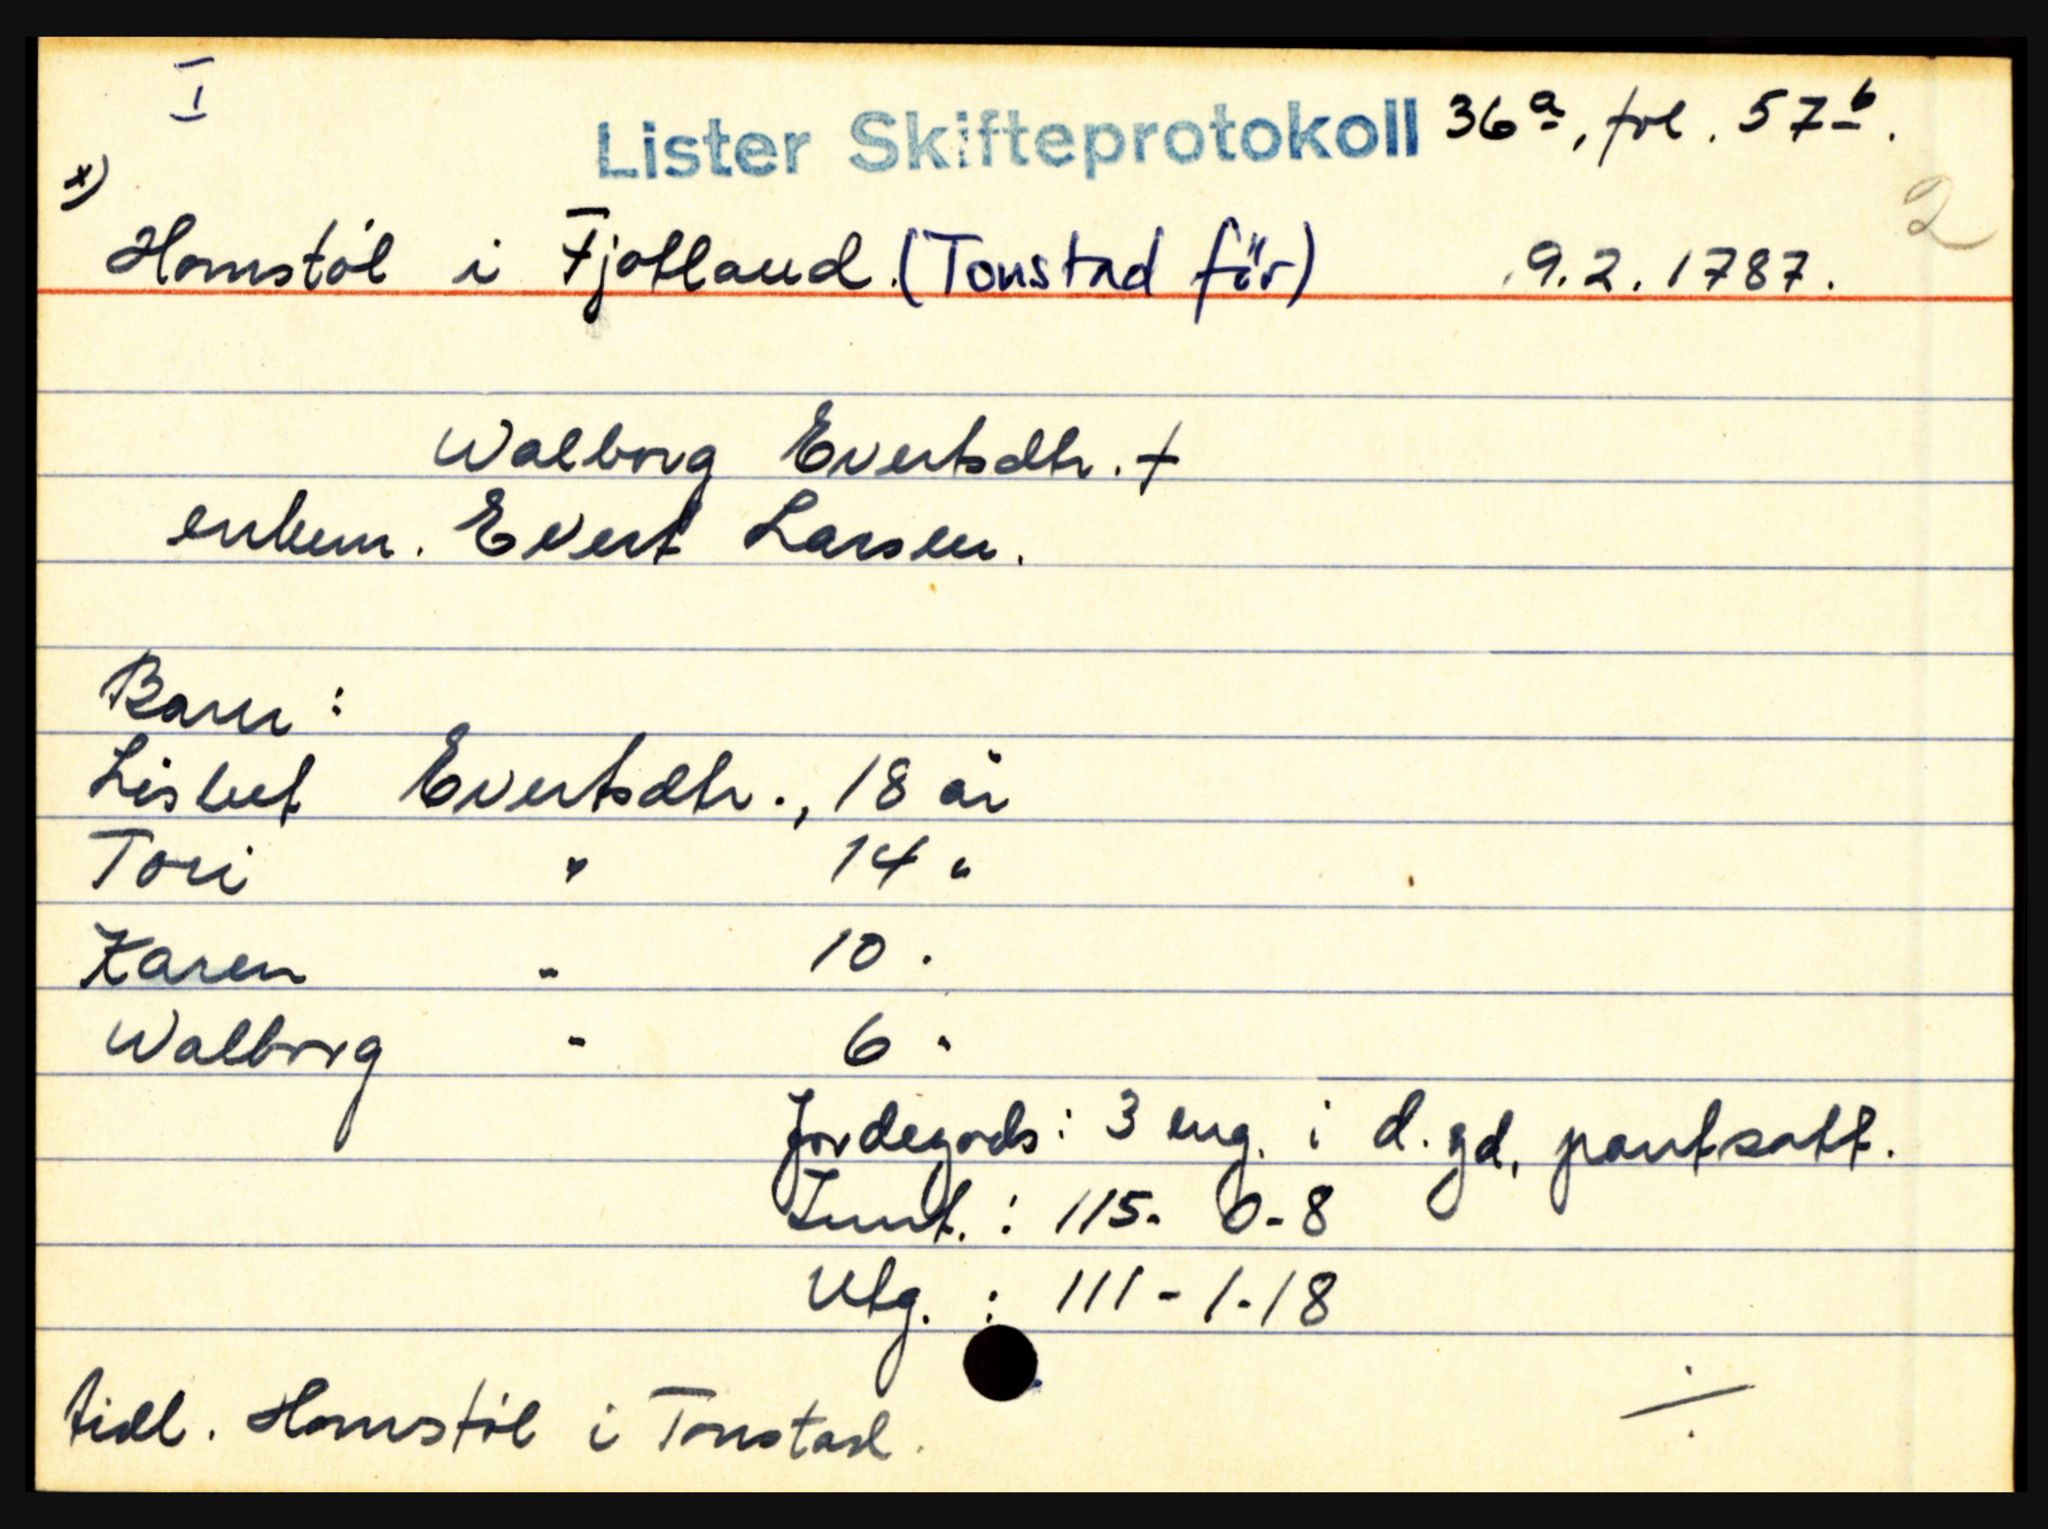 I
Lister Skifteprotokoll 36a, fol. 57b.
2
x)
Homstöl i Fjotland. (Tonstad för) 9.2.1787.
Walborg Evertsdtr. †
enkem. Evert Larsen.
Barn:
Lisbet Evertsdtr., 18 år
Tori " 14 "
Karen " 10 "
Walborg " 6 "
Jordegods: 3 eng. i d. gd, pantsatt.
Innt. : 115- 0-8
Utg. : 111-1-18
tidl. Homstöl i Tonstad.
÷